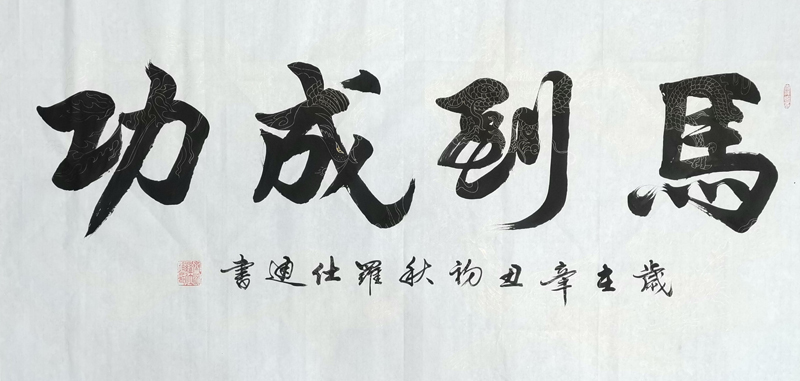 馬到成功
歲在辛丑初秋羅仕通書